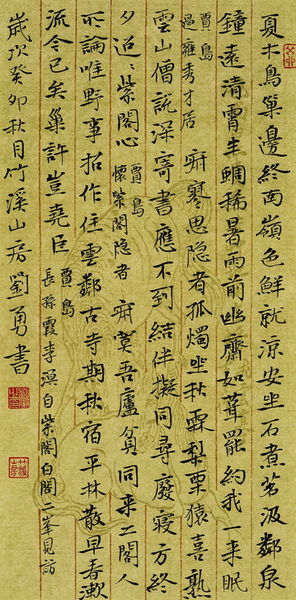 夏木鳥巢邊終南嶺色鮮就涼安坐石煮茗汲鄰泉
鐘遠清霄半蜩稀暑雨前幽齋如葺罷約我一來眠
賈島
過雍秀才居
寂寥思隱者孤燭坐秋霖梨栗猿喜熟
雲山僧說深寄書應不到結伴擬同尋廢寢方終
夕迢〻紫閣心
賈島
懷紫閣隱者
寂寞吾廬貧同來二閣人
所論唯野事招作住雲鄰古寺期秋宿平林散早春漱
流今已矣巢許豈堯臣
賈島
長孫霞李溟自紫閣白閣二峯見訪
歲次癸卯秋月竹溪山房劉勇書